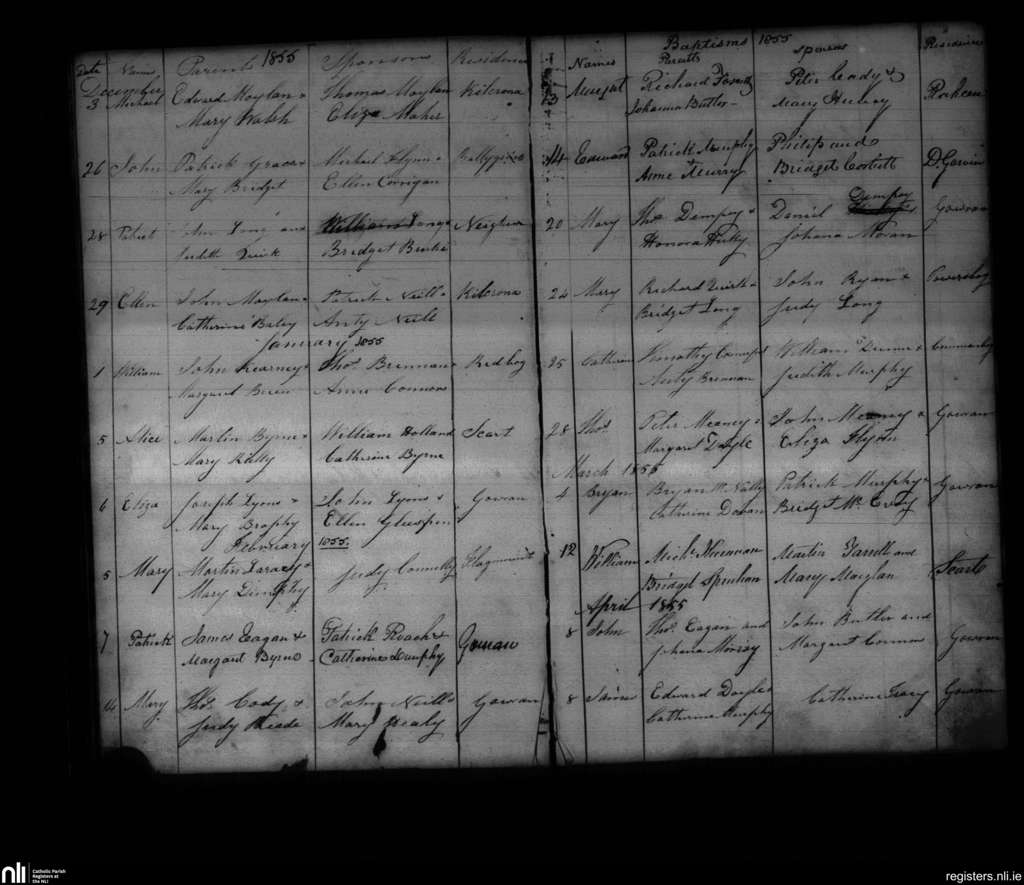 1855
Date Names Parents Sponsors Residence
December
3 Michael Edward Moylan & Thomas Moylan Kilcrona
Mary Walsh Eliza Maher
26 John Patrick Grace & Michael Flynn &
Mary Bridget Ellen Corrigan
28 Patrick John Long and William Long &
Judith Quirk Bridget Burke
29 Ellen John Moylan & Patrick Neill & Kilcrona
Catherine Anty Neill
January 1855
1 William John Kearney & Thos. Brennan & Redbog
Margaret Anne Connors
5 Alice Martin Byrne & William Holland Scart
Mary Kelly Catherine Byrne
6 Eliza Joseph Lyons & John Lyons & Gowran
Mary Brophy Ellen
February 1855.
5 Mary Martin & Judy Connelly
Mary
7 Patrick James Eagan & Patrick Roach & Gowran
Margaret Byrne Catherine Murphy
Mary Thos. Cody & John Neill & Gowran
Judy Meade Mary Healy
Baptisms 1855
Names Parents sponsors Residence
13 Margt Richard Peter Cady &
Johanna Butler Mary
14 Edward Patrick Murphy Philip and
& Anne Murry Bridget Corbett
20 Mary Thos. Dempsy & Daniel Dempsy Gowran
Honora Johana Moran
24 Mary Richard Quirk & John Ryan &
Bridget Long Judy Long
25 Catherine Timothy William &
Anty Brennan Judith Murphy
28 Thos. Peter Meaney & John Meaney & Gowran
Margaret Doyle Eliza Flynn
March 1855
4 Bryan Bryan McNally Patrick Murphy & Gowran
Catherine Bridget
12 William Michl. Martin Farrell and Scart
Bridget Mary Moylan
April 1855
8 John Thos. Eagan and John Butler and Gowran
Johana Margaret Connors
8 James Edward Doyle & Catherine Tracy Gowran
Catherine Murphy
nli
Catholic Parish
Registers at
the NLI
registers.nli.ie